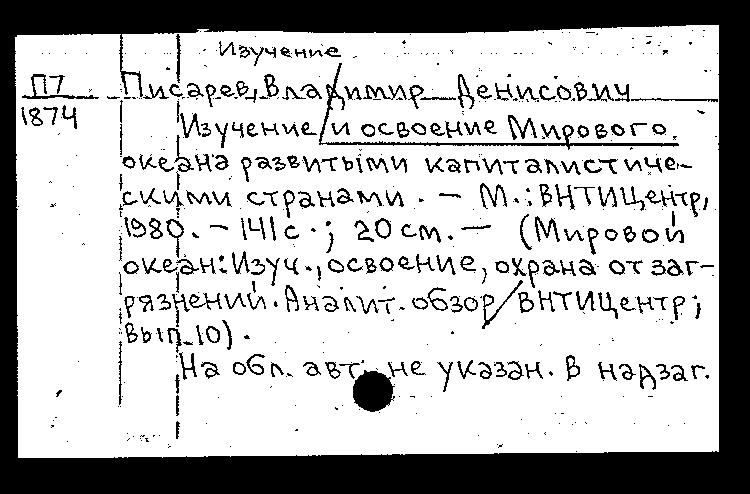 Изучение
П7 Писарев, Владимир Денисович
1874
Изучение / и освоение Мирового
океана развитыми капиталистиче-
скими странами. – М.: ВНТИЦентр,
1980. – 141 с.; 20 см. – (Мировой
океан: Изуч., освоение, охрана от заг-
рязнений. Аналит. обзор / ВНТИЦентр;
Вып. 10).
На обл. авт. не указан. В надзаг.